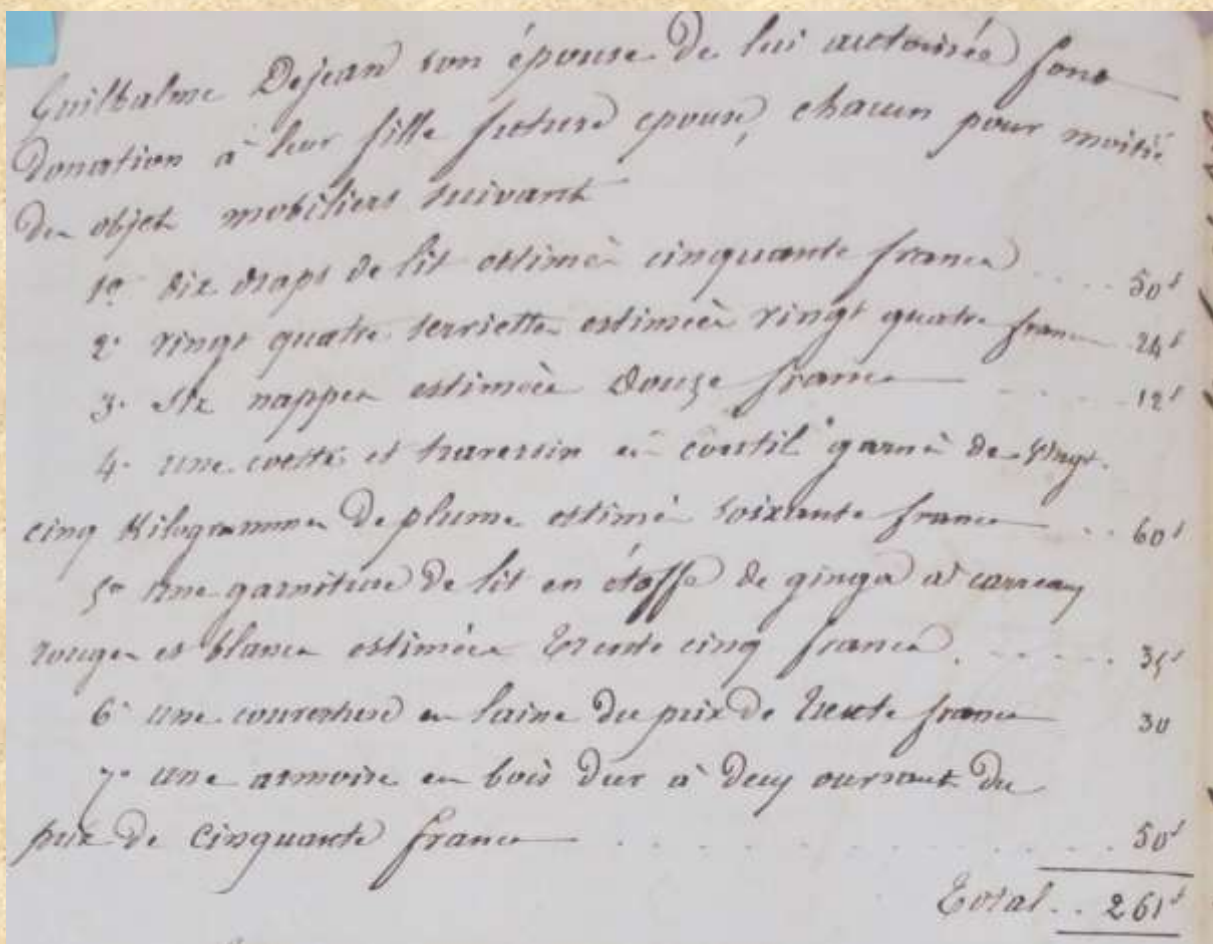 Guilhalme Dejean son épouse de lui autorisée font
donation à leur fille future epouse, chacun pour moitié
des objets mobiliers suivant
1º dix draps de lit estimés cinquante francs .... 50f
2º vingt quatre serviettes estimées vingt quatre francs .. 24f
3º six nappes estimées douze francs ...... 12f
4º une coette et traversin en coutil garnis de vingt
cinq Kilogrammes de plume estimés soixante francs .. 60f
5º une garniture de lit en étoffe de ginga à carreaux
rouges et blancs estimée trente cinq francs. ..... 35f
6º une couverture en laine du prix de trente francs 30
7º une armoire en bois dur à deux ouvrant du
prix de cinquante francs .............. 50f
Total .. 261f